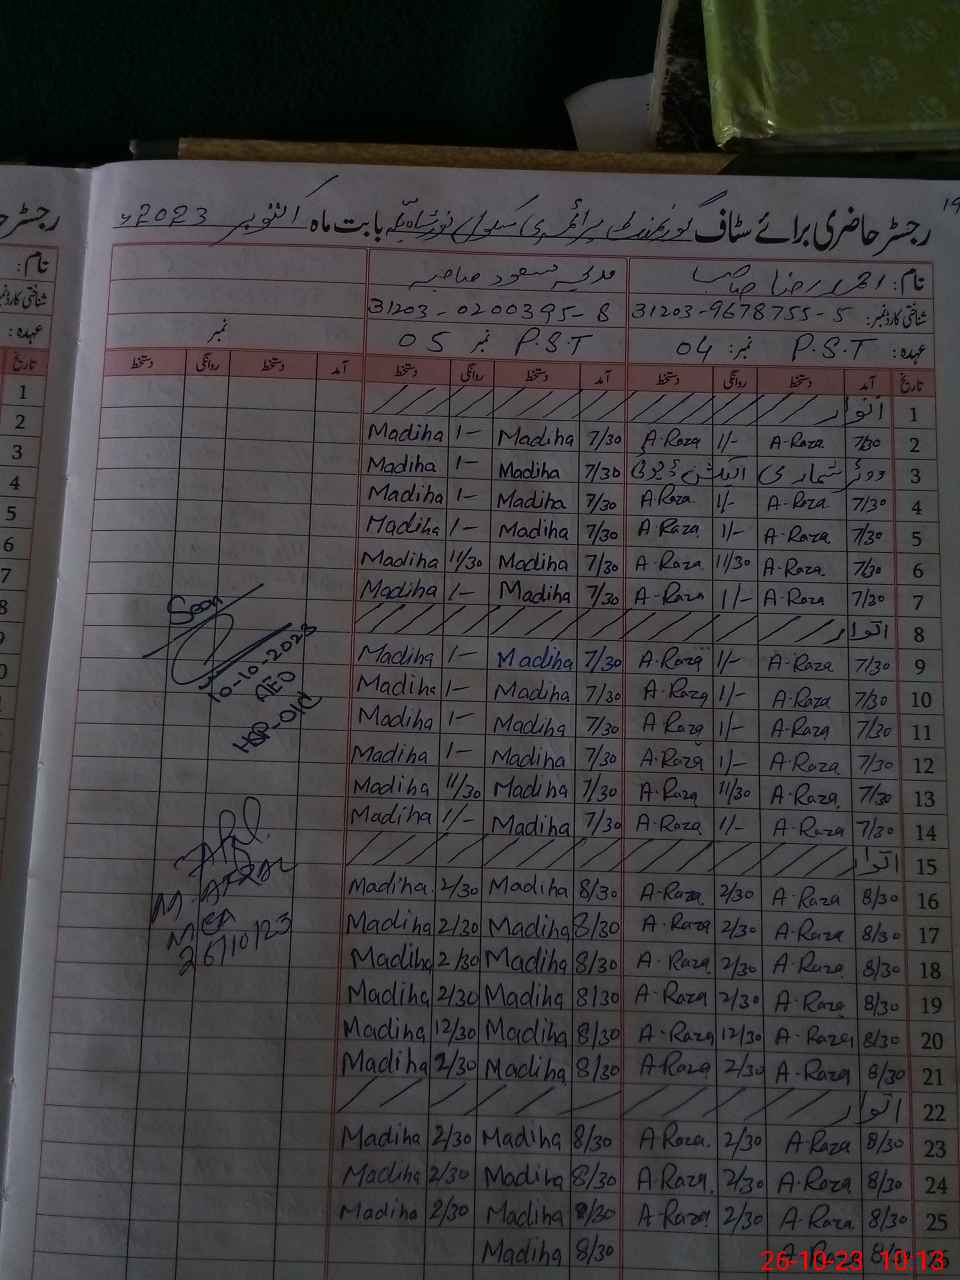 رجسٹر حاضری برائے سٹاف گورنمنٹ پرائمری سکول بابت ماہ اکتوبر 2023ء
نام: احمد رضا صاحب مدیحہ مسعود صاحبہ
شناختی کارڈ نمبر: 31203-9678755-5 31203-0200395-8
عہدہ: P.S.T نمبر: 04 P.S.T نمبر 05 نمبر
تاریخ آمد دستخط روانگی دستخط آمد دستخط روانگی دستخط آمد دستخط روانگی دستخط
1 اتوار
2 7/30 A-Raza 1/- A-Raza 7/30 Madiha 1- Madiha
3 ووٹر شماری الیکشن ڈیوٹی 7/30 Madiha 1- Madiha
4 7/30 A-Raza 1/- A-Raza 7/30 Madiha 1- Madiha
5 7/30 A-Raza 1/- A-Raza 7/30 Madiha 1- Madiha
6 7/30 A-Raza 11/30 A-Raza 7/30 Madiha 11/30 Madiha
7 7/30 A-Raza 1/- A-Raza 7/30 Madiha 1- Madiha
8 اتوار
9 7/30 A-Raza 1/- A-Raza 7/30 Madiha 1- Madiha
10 7/30 A-Raza 1/- A-Raza 7/30 Madiha 1- Madiha
11 7/30 A-Raza 1/- A-Raza 7/30 Madiha 1- Madiha
12 7/30 A-Raza 1/- A-Raza 7/30 Madiha 1- Madiha
13 7/30 A-Raza 11/30 A-Raza 7/30 Madiha 11/30 Madiha
14 7/30 A-Raza 1/- A-Raza 7/30 Madiha 1/- Madiha
15 اتوار
16 8/30 A-Raza 2/30 A-Raza 8/30 Madiha 2/30 Madiha
17 8/30 A-Raza 2/30 A-Raza 8/30 Madiha 2/30 Madiha
18 8/30 A-Raza 2/30 A-Raza 8/30 Madiha 2/30 Madiha
19 8/30 A-Raza 2/30 A-Raza 8/30 Madiha 2/30 Madiha
20 8/30 A-Raza 12/30 A-Raza 8/30 Madiha 12/30 Madiha
21 8/30 A-Raza 2/30 A-Raza 8/30 Madiha 2/30 Madiha
22 اتوار
23 8/30 A-Raza 2/30 A-Raza 8/30 Madiha 2/30 Madiha
24 8/30 A-Raza 2/30 A-Raza 8/30 Madiha 2/30 Madiha
25 8/30 A-Raza 2/30 A-Raza 8/30 Madiha 2/30 Madiha
26 8/30 A-Raza 8/30 Madiha
Seen
10-10-2023
AEO
M.
MEA
26/10/23
نام:
شناختی کارڈ نمبر
عہدہ:
تاریخ
1
2
3
4
5
6
7
8
26-10-23 10:13